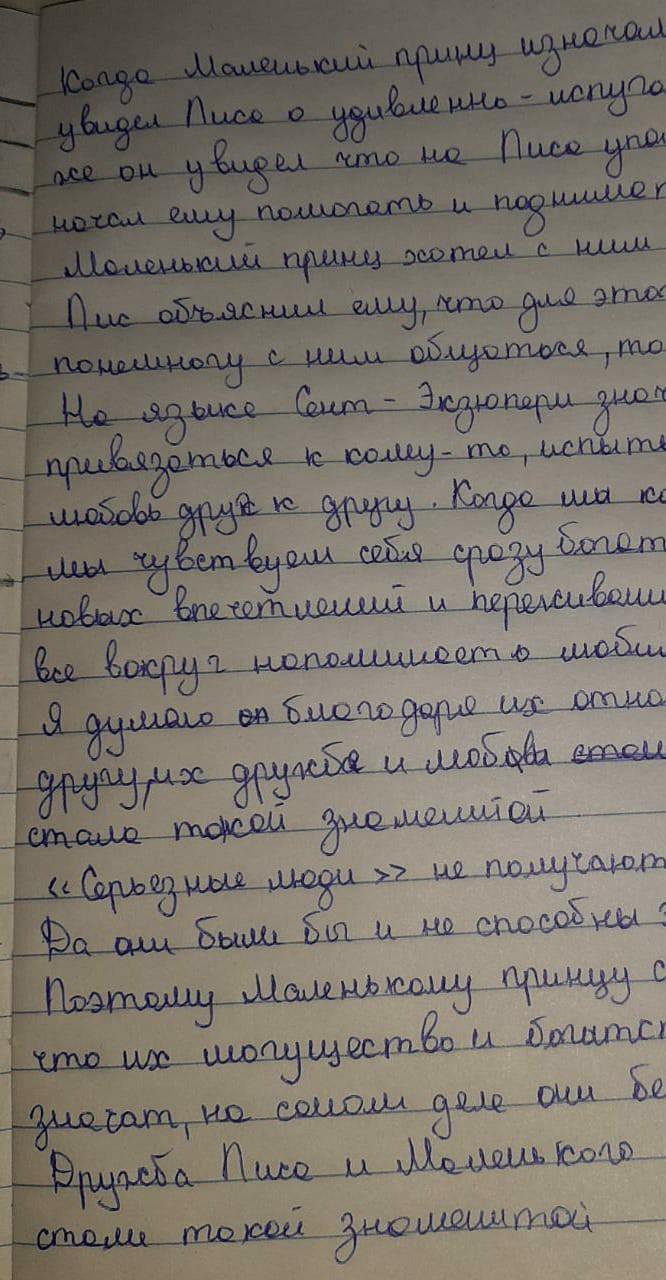 Когда Маленький принц изначал
увидел Лиса о удивленно - испуга
же он увидел что на Лиса упа
начал ему помогать и поднимат
Маленький принц хотел с ним
Лис объяснил ему, что для этог
понемногу с ним общаться, то
На языке Сент - Экзюпери знач
привязаться к кому-то, испыты
любовь друг к другу. Когда мы ко
мы чувствуем себя сразу богат
новых впечетлений и переживани
все вокруг напоминает о люби
Я думаю благодаря их отно
другу, их дружба и любовь
стала такой знаменитой
«Серьезные люди» не получают
Да они были бы и не способны
Поэтому Маленькому принцу с
что их могущество и богатст
значат, на самом деле они бе
Дружба Лиса и Маленького
стали такой знаменитой